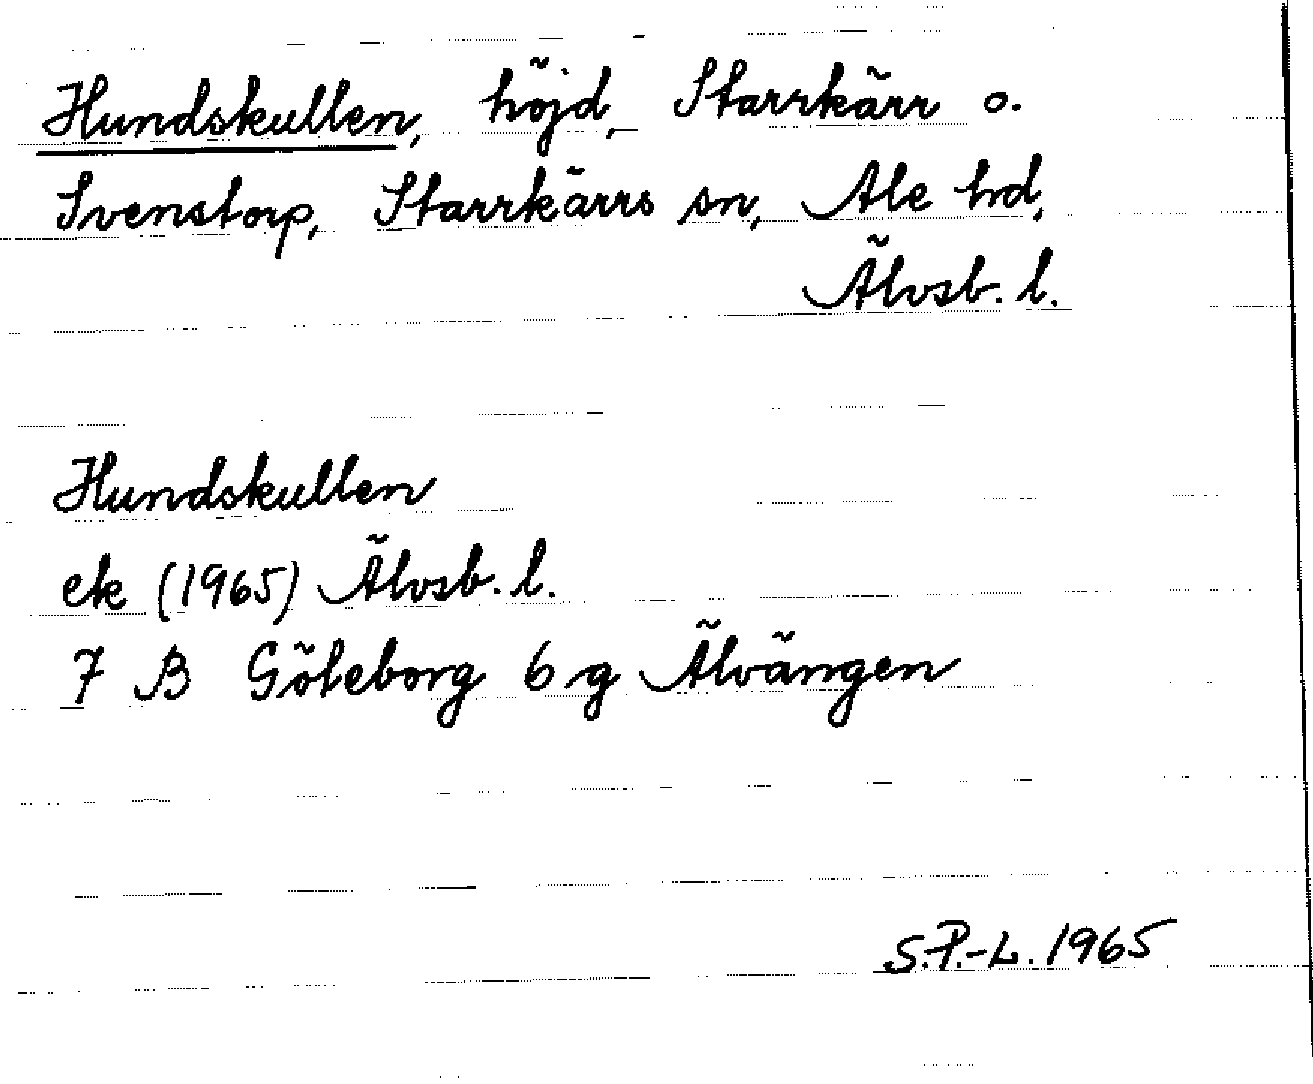 Hundskullen, höjd, Starrkärr o.
Svenstorp, Starrkärrs sn, Ale hd,
Älvsb. l.
Hundskullen
ek (1965) Älvsb. l.
7 B Göteborg 6 g Älvängen
S.P.-L. 1965